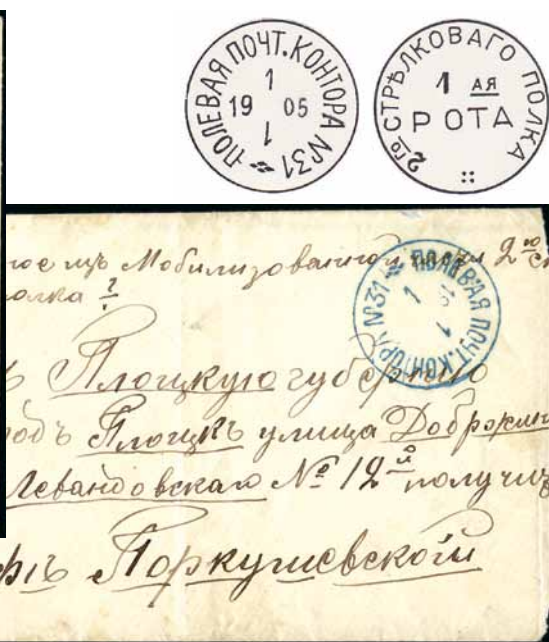 ПОЛЕВАЯ ПОЧТ. КОНТОРА №31
1
19 05
1
2го СТРѢЛКОВАГО ПОЛКА
1 АЯ
РОТА
изъ Мобилизованной 2го
полка
ПОЛЕВАЯ ПОЧТ. КОНТОРА №31
1
1
Плоцкую губернію
Плоцкъ улица Добржин
Левандовскаго № 12й получить
Поркушевской